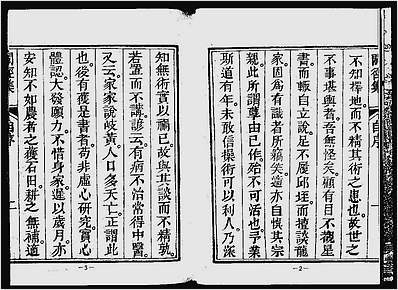 闢徑集　自序
不知擇地而不精其術之患也。故世之
不事堪輿者。吾無怪矣。顧有目不覩星
書。而輒自立說。足不履邱垤。而擅談龍
家。固爲有識者所竊笑。蓋亦自悞其宗
親。此所謂孽由己作。殆不可活也。予業
斯道有年。未敢信操術可以利人。乃深
-2-
知無術實以禍己。故與其談而不精。孰
若置而不講。諺云。有病不治。常得中醫。
又云。家家說岐黃。人口多夭亡。正謂此
也。後有獲是書者。苟非虛心研究。實心
體認。大發願力。不惜身家。遲以歲月。亦
安知不如農者之獲石田。耕之無補。道
自序
-3-